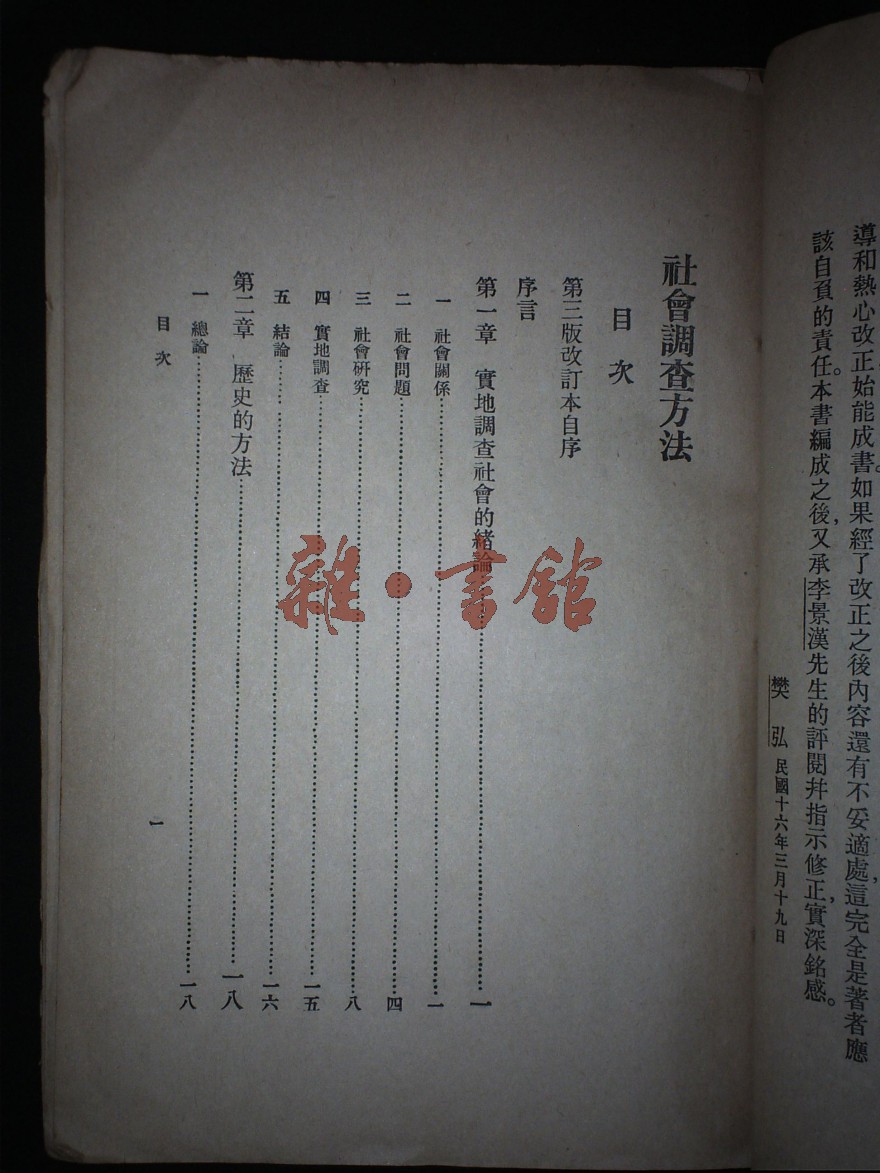 導和熱心改正始能成書。如果經了改正之後內容還有不妥適處，這完全是著者應
該自負的責任。本書編成之後，又承李景漢先生的評閱幷指示修正，實深銘感。
樊 弘 民國十六年三月十九日
社會調查方法
目 次
第三版改訂本自序
序言
第一章 實地調查社會的緒論……一
一 社會關係……一
二 社會問題……四
三 社會研究……八
四 實地調查……一五
五 結論……一六
第二章 歷史的方法……一八
一 總論……一八
目 次
一
雜·書館